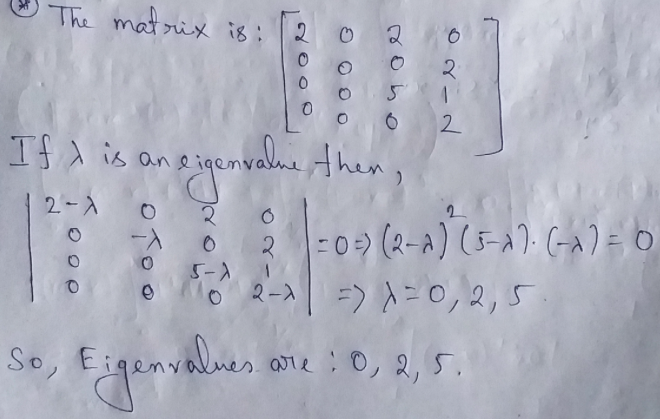 The matrix is: [2 0 2 0
0 0 0 2
0 0 5 1
0 0 0 2]
If λ is an eigenvalue then,
|2-λ 0 2 0|
|0 -λ 0 2| = 0 => (2-λ)² (5-λ). (-λ) = 0
|0 0 5-λ 1| => λ = 0, 2, 5.
|0 0 0 2-λ|
So, Eigenvalues are : 0, 2, 5.